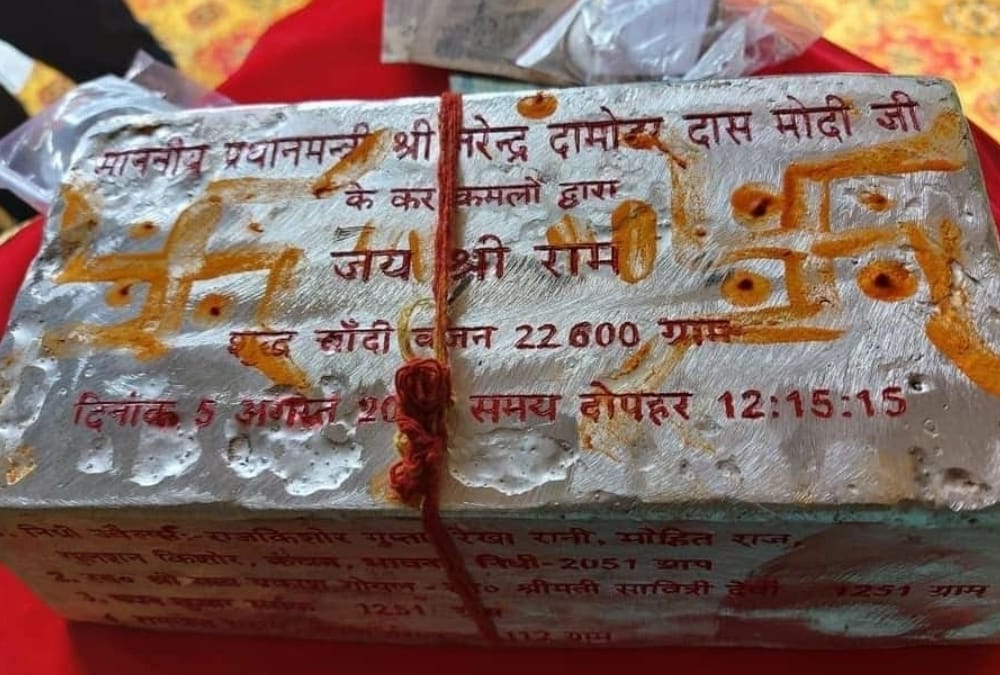 माननीय प्रधानमन्त्री श्री नरेन्द्र दामोदर दास मोदी जी
के कर कमलों द्वारा
जय श्री राम
शुद्ध चाँदी वजन 22600 ग्राम
दिनांक 5 अगस्त 20 समय दोपहर 12:15:15
राजकिशोर गुप्ता रेखा रानी, मोहित राज,
गुलशन किशोर, निधी-2051 ग्राम
2. स्व० श्री श्रीमती सावित्री देवी 1251 ग्राम
3. 1251
112 ग्राम